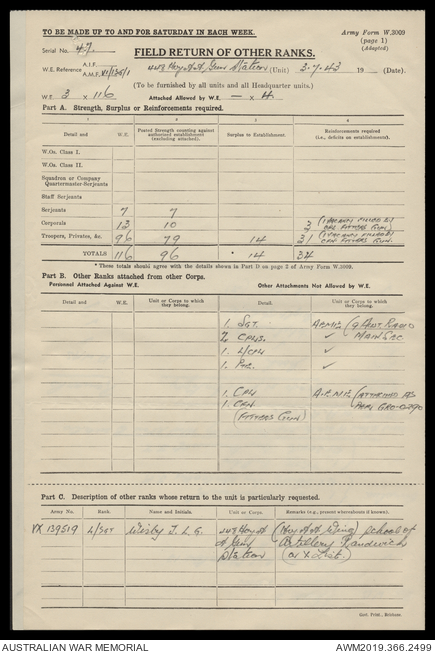 TO BE MADE UP TO AND FOR SATURDAY IN EACH WEEK.
Army Form W.3009
(page 1)
(Adapted)
Serial No. 47
FIELD RETURN OF OTHER RANKS.
W.E. Reference A.I.F.
A.M.F. VI/135/1
448 Hvy A A Gun Station (Unit) 3.7.43 19 (Date).
(To be furnished by all units and all Headquarter units.)
W.T. 3 x 116 Attached Allowed by W.E. — x 4
Part A. Strength, Surplus or Reinforcements required.
1 2 3 4
Detail and W.E. Posted Strength counting against authorized establishment (excluding attached). Surplus to Establishment. Reinforcements required (i.e., deficits on establishments).
W.Os. Class I.
W.Os. Class II.
Squadron or Company Quartermaster-Serjeants
Staff Serjeants
Serjeants 7 7
Corporals 13 10 3 (1 vacancy filled by
Fitters Gun)
Troopers, Privates, &c. 96 79 14 31 (1 vacancy filled by
Cfn Fitters Gun.
TOTALS 116 96 * 14 34
* These totals should agree with the details shown in Part D on page 2 of Army Form W.3009.
Part B. Other Ranks attached from other Corps.
Personnel Attached Against W.E. Other Attachments Not Allowed by W.E.
Detail and W.E. Unit or Corps to which they belong. Detail. Unit or Corps to which they belong.
1. Sgt. A.E.M.E. (9 Radio
2 Cpls. ✓ Main Sec
1. L/Cpl ✓
1. Pte. ✓
1. Cpl A.E.M.E. (attached as
1. Cfn. per GRO
(Fitters Gun)
Part C. Description of other ranks whose return to the unit is particularly requested.
Army No. Rank. Name and Initials. Unit or Corps. Remarks (e.g., present whereabouts if known).
VX 139519 L/Sgt Wisby T. L. G. 448 Hvy A (Hvy A.A. Wing) School of
A Gun Artillery Randwick
Station (or X List.)
Govt. Print., Brisbane.
AUSTRALIAN WAR MEMORIAL
AWM2019.366.2499